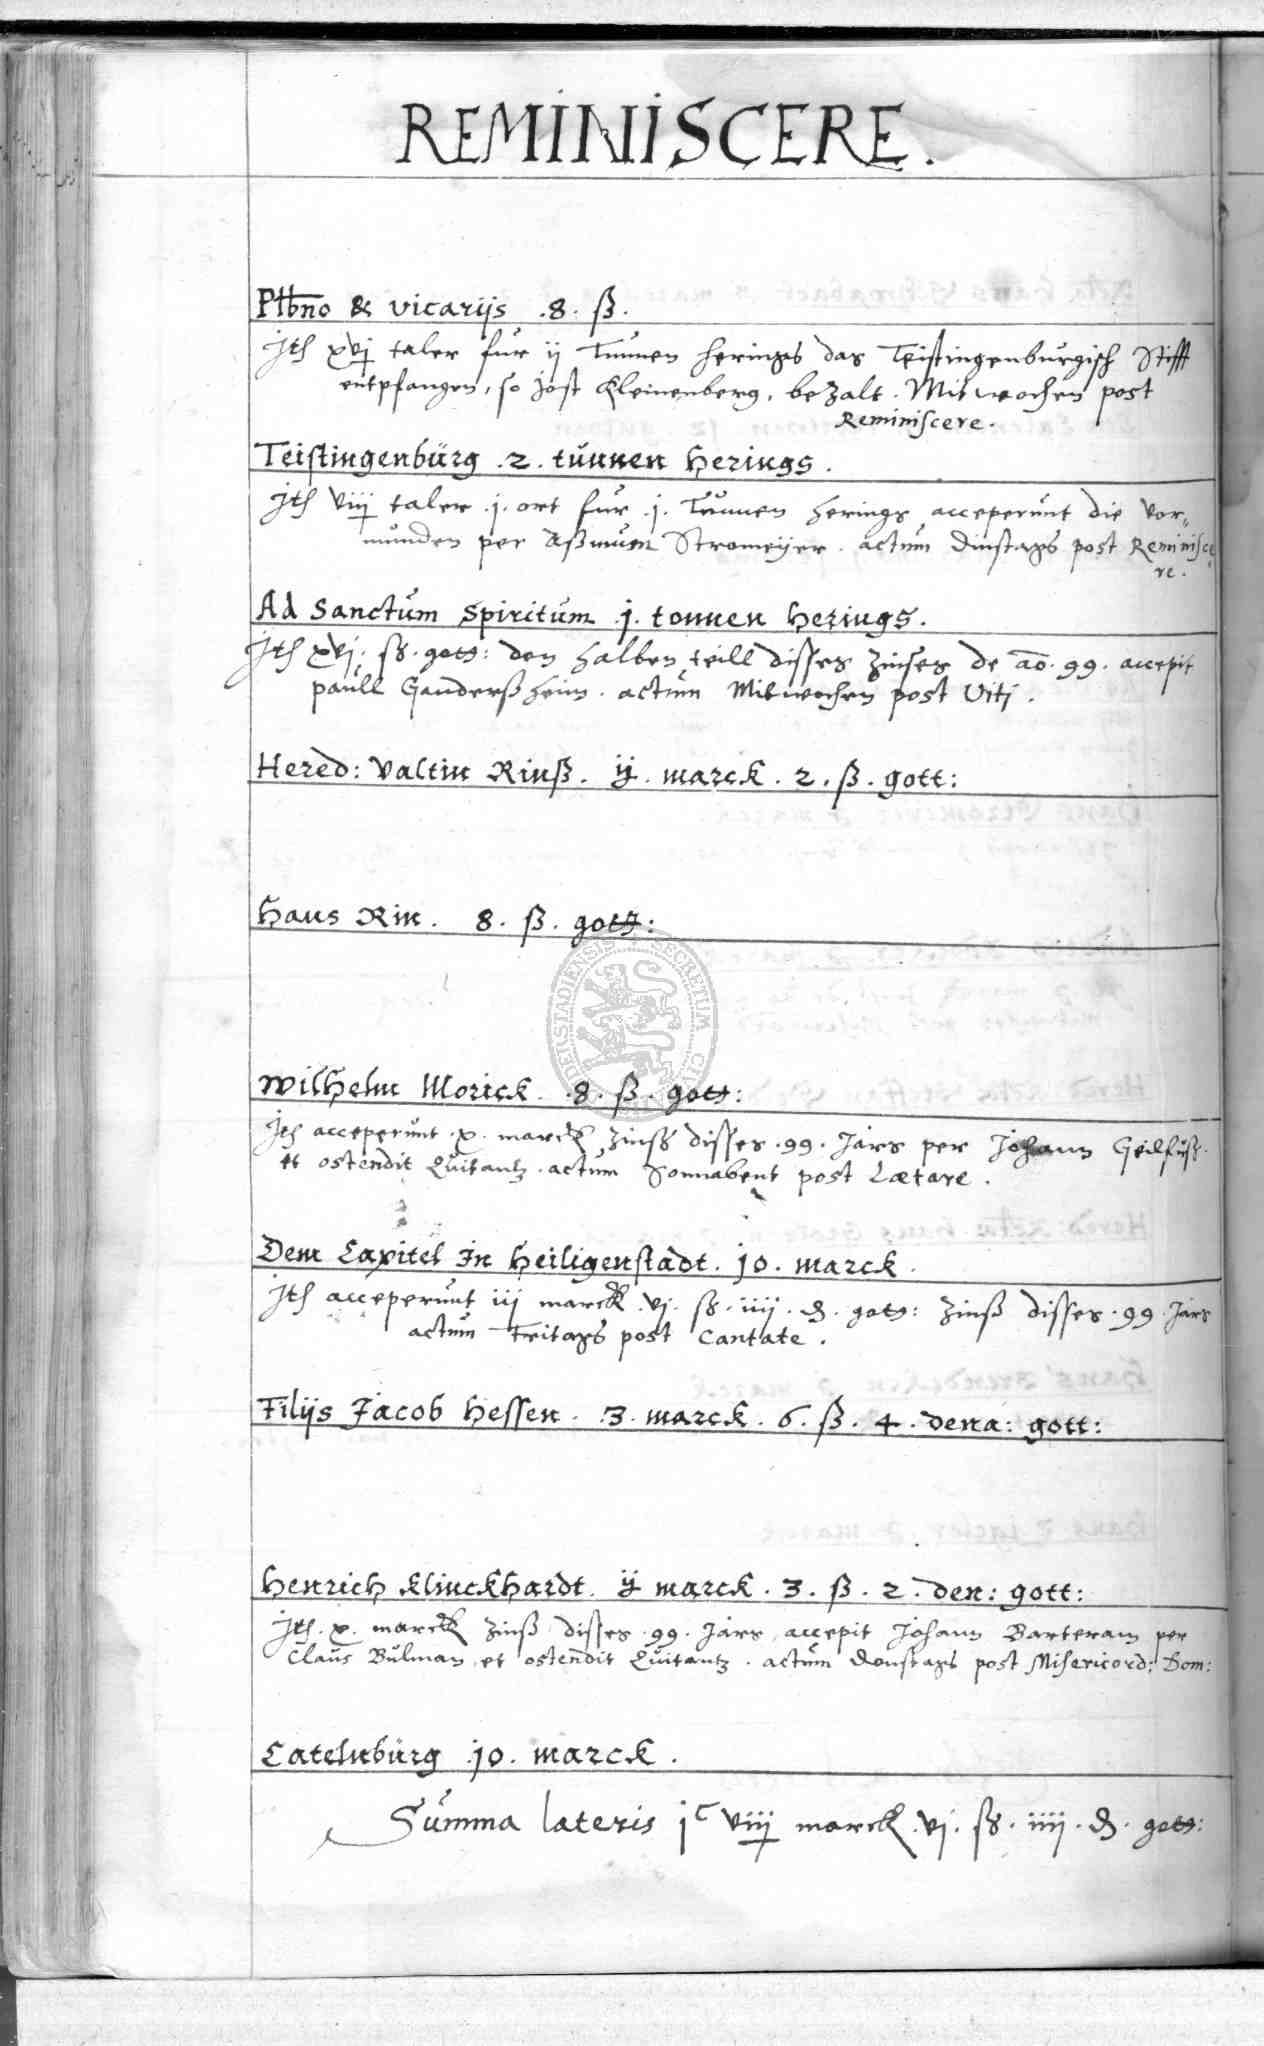 REMINISCERE.
Plbno & vicarijs .8. ß.
Ith xvj taler fur ij Tunnen herings das Teistingenburgisch Stifft
entpfangen, so Jost Kleinenberg, bezalt. Mitwochen post
Reminiscere.
Teistingenbürg .2. tünnen Herings.
Ith viij taler .j. ort fur .j. Tunnen herings acceperunt die Vor-
munden per Aßmum Stromeijer. actum Dinstags post Reminisce
re.
Ad Sanctüm Spiritüm .j. tonnen Herings.
Ith xvj. ß. gott: den halben teill disses Zinses de ao. 99. accepit
paull Ganderßheim. actum Mitwochen post Viti.
Hered: Valtin Rinß. ij. marck. 2. ß. gott:
Hans Rin. 8. ß. gott:
SECRETUM
Wilhelm Morick. .8. ß. gott:
Ith acceperunt .x. marck Zinß disses .99. Jars per Johann Geilfuß.
et ostendit Quitantz. actum Sonnabent post Lætare.
Dem Capitel In Heiligenstadt. jo. marck.
Ith acceperunt iij marck .vj. ß. iiij. d. gott: Zinß disses .99. Jars
actum Fritags post Cantate.
Filijs Jacob Hessen. 3. marck. 6. ß. 4. dena: gott:
Henrich Klinckhardt. ij marck. 3. ß. 2. den: gott:
Ith. x. marck Zinß disses .99. Jars, accepit Johann Barteram per
Claus Bulman, et ostendit Quitantz. actum Donstags post Misericord: Dom:
Catelnbürg .jo. marck.
Summa lateris jc viij marck. vj. ß. iiij. d. gott: